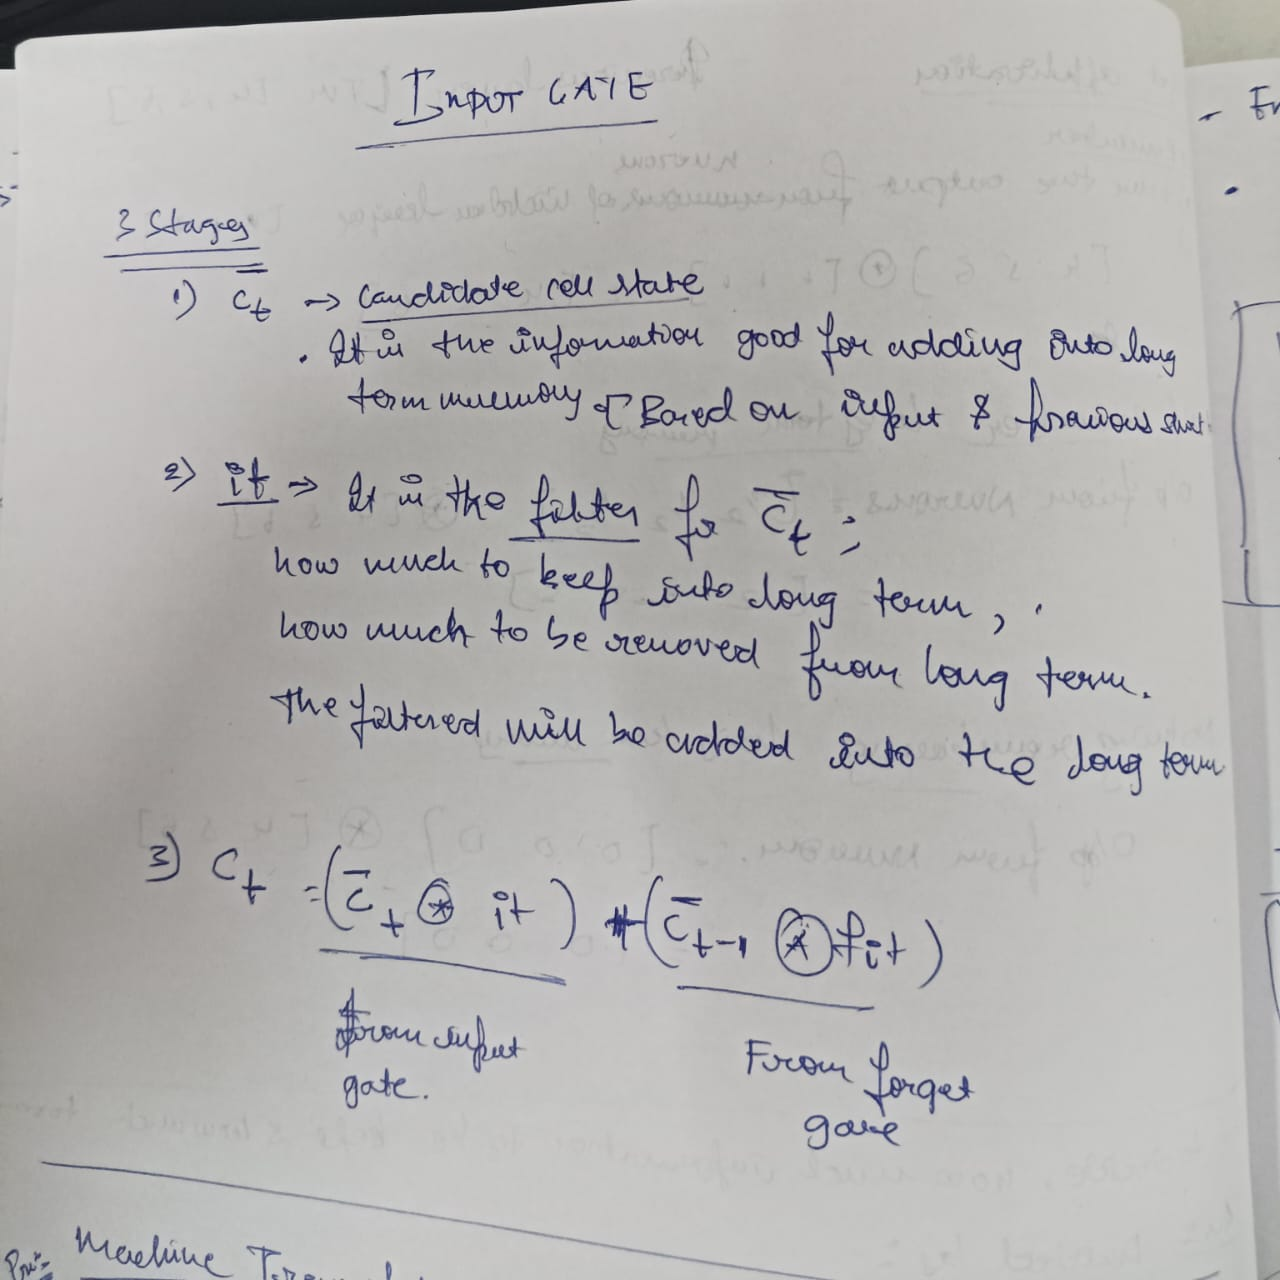 INPUT GATE
3 Stages
1) C̅t → Candidate cell state
. It is the information good for adding into long
term memory [Based on input & previous stat
2) it → It is the filter for C̅t ;
how much to keep into long term,
how much to be removed from long term.
The filtered will be added into the long term
3) Ct = (C̅t ⊛ it) + (C̅t-1 ⊛ fit)
From input
gate.
From forget
gate
Machine